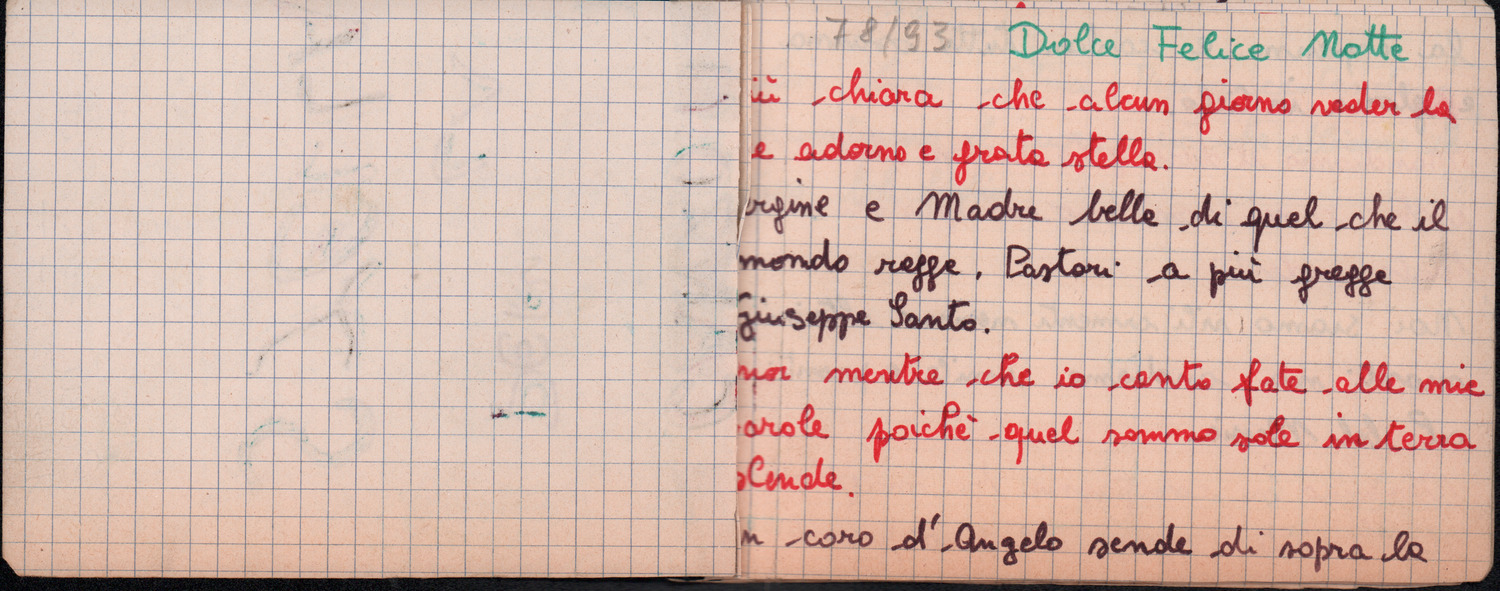 78/93 Dolce Felice Notte
iù chiara che alcun giorno veder la
e adorno e grata stella.
rgine e Madre bella di quel che il
mondo regge. Pastori a più gregge
Giuseppe Santo.
mor mentre che io canto fate alle mie
arole poichè quel sommo sole in terra
scende.
n coro d'Angelo sende di sopra la